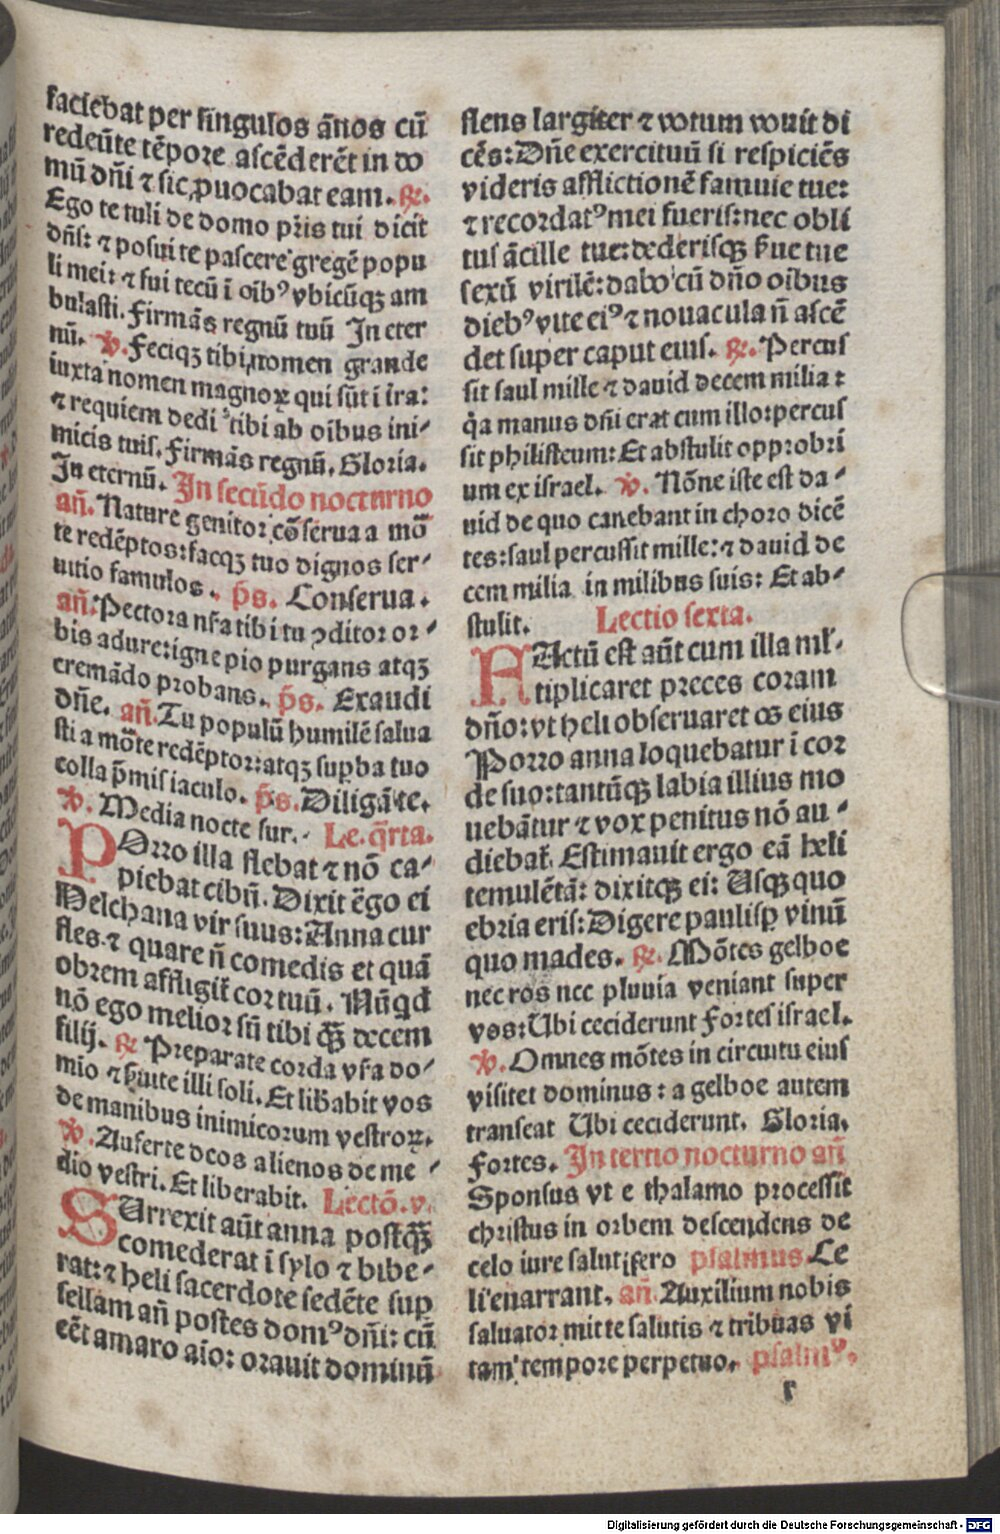 faciebat per singulos ānos cū
redeūte tēpore ascēderēt in do
mū dn̄i ⁊ sic ꝓuocabat eam. ℟.
Ego te tuli de domo pr̄is tui dicit
dn̄s: ⁊ posui te pascere gregē popu
li mei: ⁊ fui tecū ī oībꝰ vbicūqꝫ am
bulasti. Firmās regnū tuū In eter
nū. ℣. Feciqꝫ tibi nomen grande
iuxta nomen magnoꝝ qui sūt i t̄ra:
⁊ requiem dedi tibi ab oībus ini-
micis tuis. Firmās regnū. Gloria.
In eternū. In secūdo nocturno
an̄. Nature genitor cōserua a mō
te redēptos: facqꝫ tuo dignos ser-
uitio famulos. p̄s. Conserua.
an̄. Pectora nr̄a tibi tu ꝯditor or-
bis adure: igne pio purgans atqꝫ
cremādo probans. p̄s. Exaudi
dn̄e. an̄. Tu populū humilē salua
sti a mōte redēptor: atqꝫ supba tuo
colla p̄mis iaculo. p̄s. Diligā te.
℣. Media nocte sur. Le. q̄rta.
POrro illa flebat ⁊ nō ca-
piebat cibū. Dixit ēgo ei
Helchana vir suus: Anna cur
fles. ⁊ quare n̄ comedis et quā
obrem affligit̄ cor tuū. Nūqd
nō ego melior sū tibi qꝫ̄ decem
filij. ℟ Preparate corda vr̄a do-
mio ⁊ s̄uite illi soli. Et lib̄abit vos
de manibus inimicorum vestroꝝ.
℣. Auferte deos alienos de me-
dio vestri. Et liberabit. Lectō. v.
SUrrexit aūt anna postqꝫ̄
comederat i sylo ⁊ bibe-
rat: ⁊ heli sacerdote sedēte sup
sellam an̄ postes domꝰ dn̄i: cū
eēt amaro aīo: orauit dominū
flens largiter ⁊ votum vouit di
cēs: Dn̄e exercituū si respiciēs
videris afflictionē famule tue:
⁊ recordatꝰ mei fueris: nec obli
tus ācille tue: dederisqꝫ s̄ue tue
sexū virilē: dabo cū dn̄o oībus
diebꝰ vite eiꝰ ⁊ nouacula n̄ ascē
det super caput eius. ℟. Percus
sit saul mille ⁊ dauid decem milia:
q̄a manus dn̄i erat cum illo: percus
sit philisteum: Et abstulit opprobri
um ex israel. ℣. Nōne iste est da-
uid de quo canebant in choro dicē
tes: saul percussit mille: ⁊ dauid de
cem milia in milibus suis: Et ab-
stulit. Lectio sexta.
FActū est aūt cum illa ml'-
tiplicaret preces coram
dn̄o: vt heli obseruaret os eius
Porro anna loquebatur i cor
de suo: tantūqꝫ labia illius mo
uebātur ⁊ vox penitus nō au-
diebat̄. Estimauit ergo eā heli
temulētā: dixitqꝫ ei: Usqꝫ quo
ebria eris: Digere paulisp vinū
quo mades. ℟. Mōtes gelboe
nec ros nec pluuia veniant super
vos: Ubi ceciderunt Fortes israel.
℣. Omnes mōtes in circuitu eius
visitet dominus: a gelboe autem
transeat Ubi ceciderunt. Gloria.
Fortes. In tertio nocturno an̄
Sponsus vt e thalamo processit
christus in orbem descendens de
celo iure salutifero psalmus Ce
li enarrant. an̄. Auxilium nobis
saluator mitte salutis ⁊ tribuas vi
tam tempore perpetuo. psalmꝰ.
r
Digitalisierung gefördert durch die Deutsche Forschungsgemeinschaft - DFG